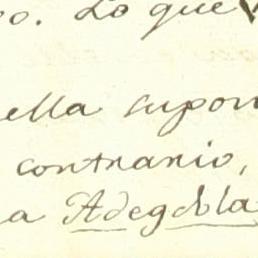 oo. Lo que
ella supon
contrario,
a Adegebla